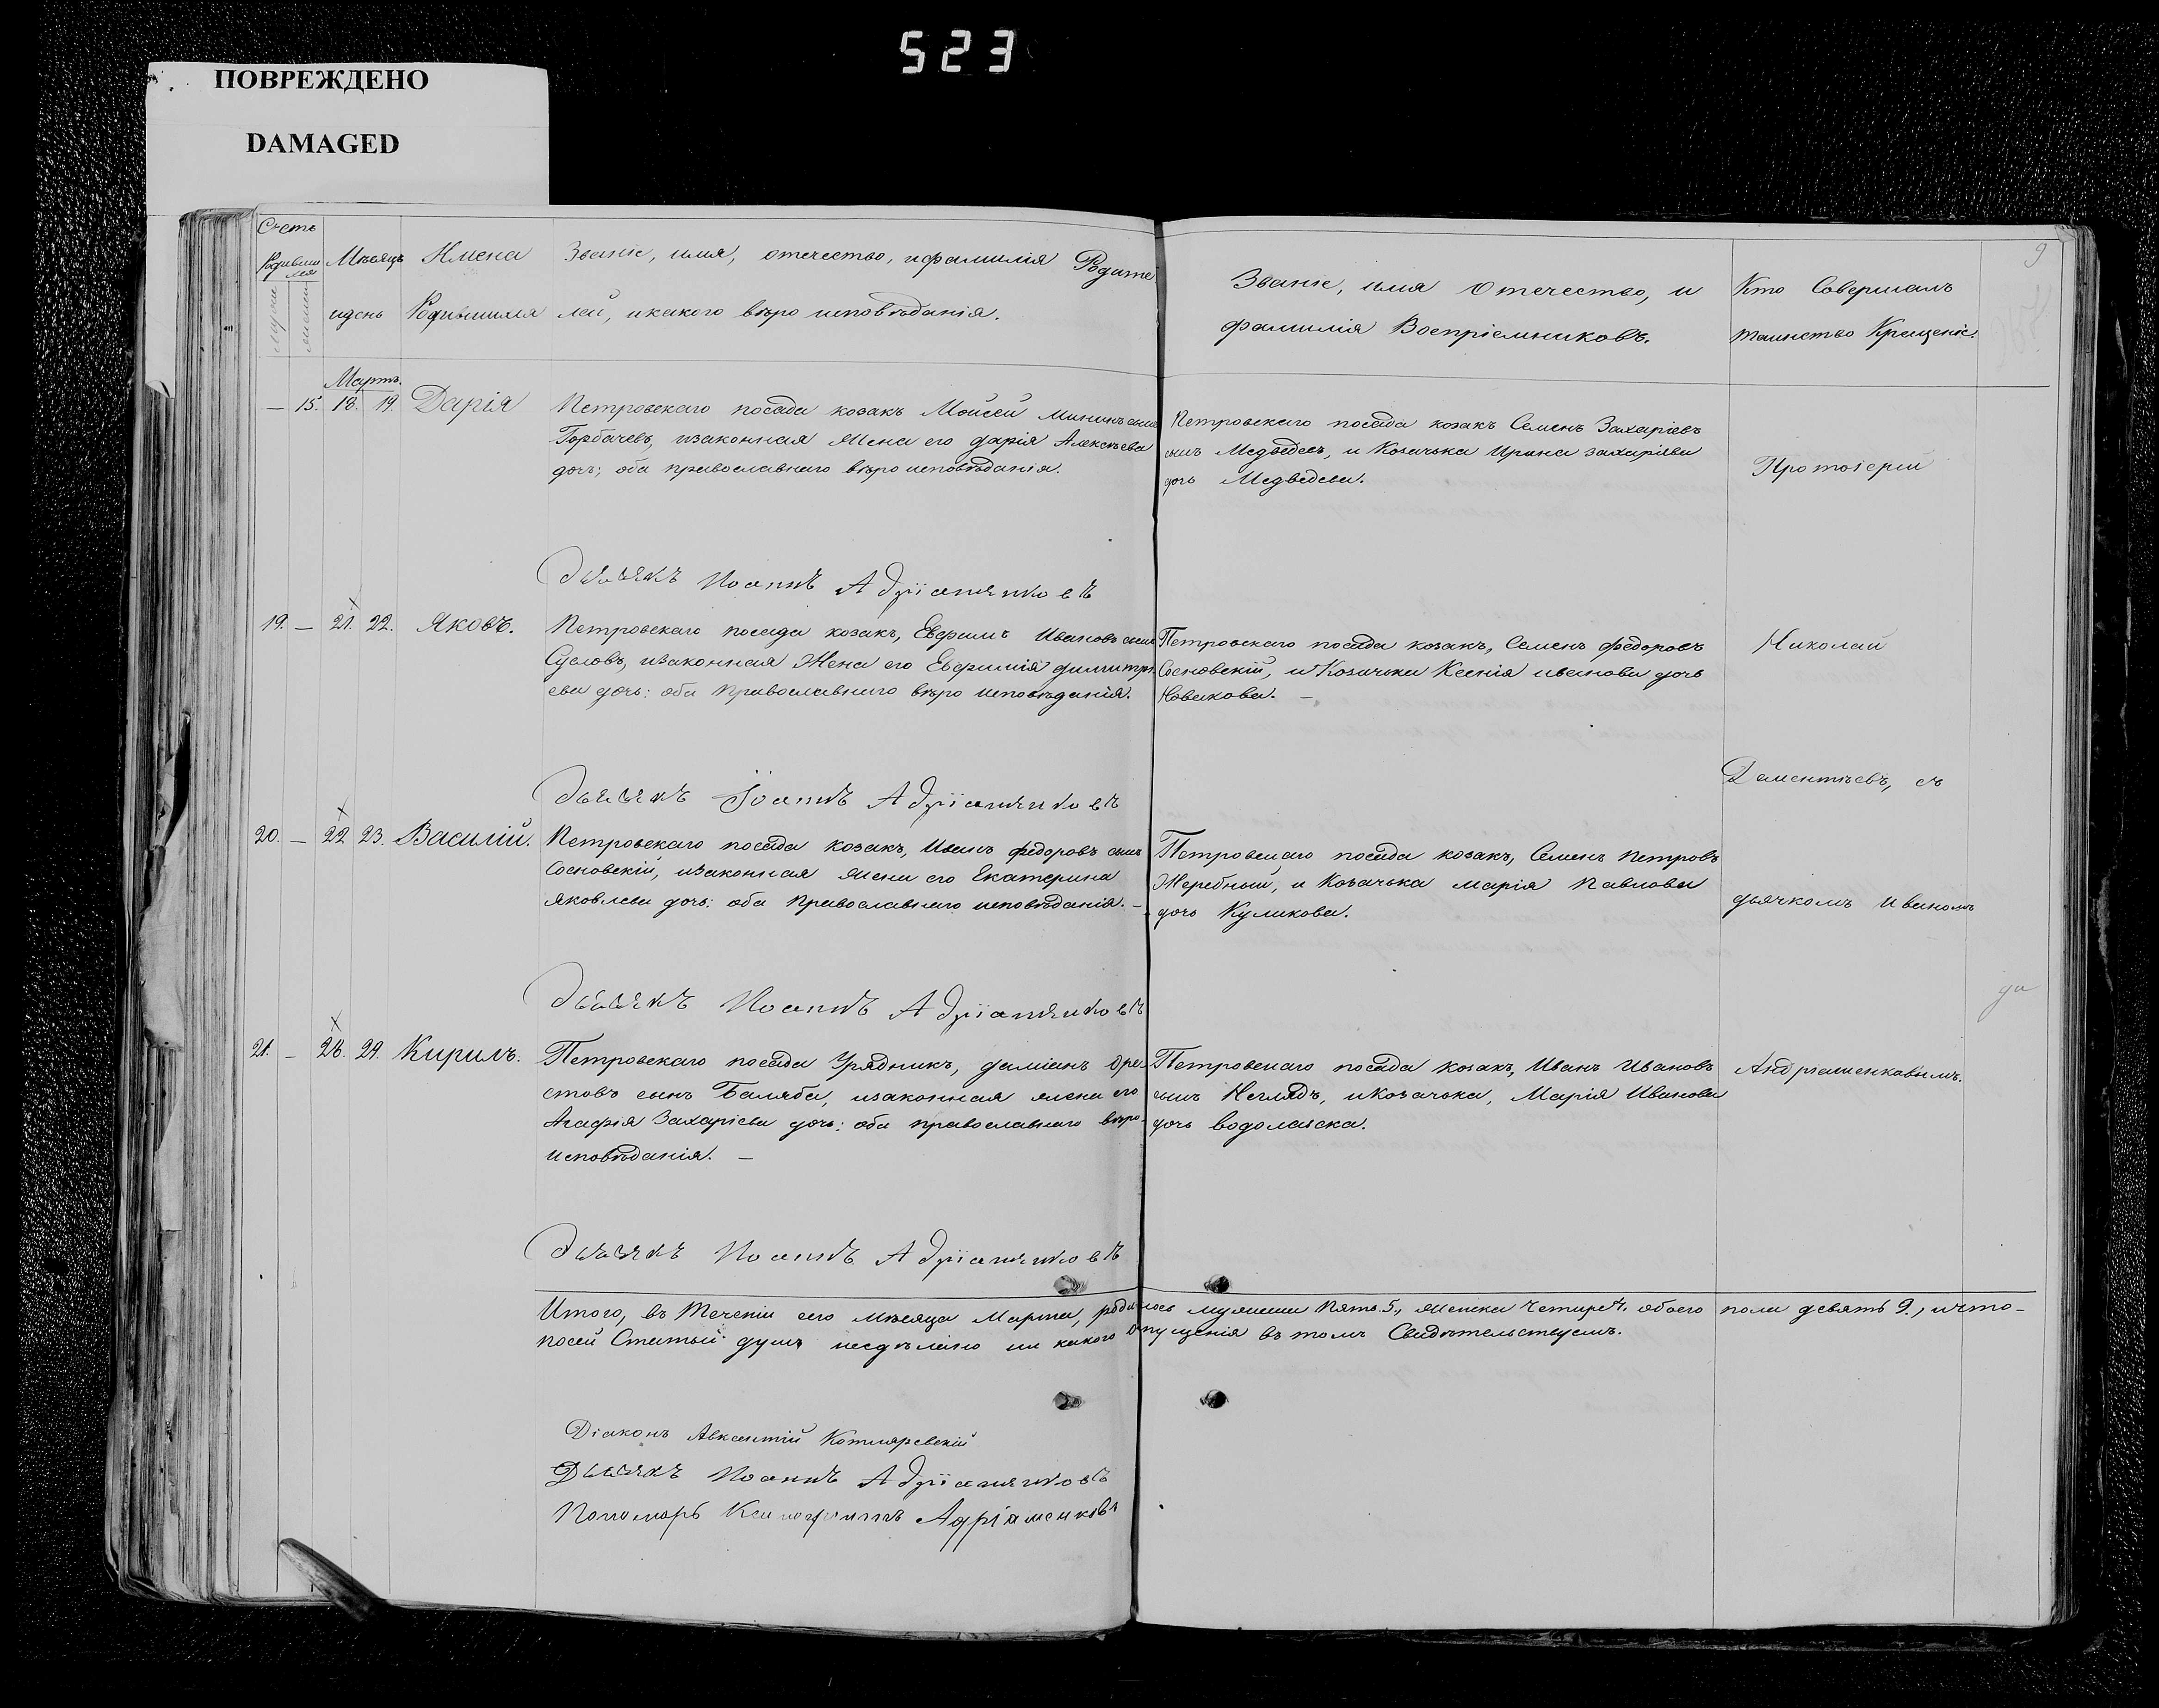 523
ПОВРЕЖДЕНО
DAMAGED
9
Счетъ
Родивши
хся
Мѣсяцъ
идень
Имена
Родившихся
Званіе, имя, отечество, ифамилія Родите
лей, икакого вѣро исповѣданія.
Званіе, имя Отечество, и
фамилія Воспріемниковъ.
Кто Совершалъ
таинство Крещеніе.
Мартъ.
— 15. 18. 19. Дарія
Петровскаго посада козакъ Мойсей Мининъ сынъ
Горбачевъ, изаконная жена его дарія Алексѣева
дочь; оба православнаго вѣро исповѣданія.
Петровскаго посада козакъ Семенъ Захаріевъ
сынъ Медведевъ, и Козачька Ирина захаріева
дочь Медведева.
Протоіерей
Дьячекъ Иоаннъ Адріаненковъ
19. — 21. 22. Яковъ.
Петровскаго посада козакъ, Евфимъ Ивановъ сынъ
Сусловъ, изаконная Жена его Евфимія димитрі
ева дочь: оба Православнаго вѣро исповѣданія.
Петровскаго посада козакъ, Семенъ федоровъ
Сосновскій, и Козачька Ксенія иванова дочь
Новикова. —
Николай
Дьячекъ Іоаннъ Адріаненковъ
Дементьевъ, съ
20. — 22 23. Василій.
Петровскаго посада козакъ, Иванъ федоровъ сынъ
Сосновскій, изаконная жена его Екатерина
Яковлева дочь: оба Православнаго исповѣданія. —
Петровскаго посада козакъ, Семенъ петровъ
Жеребный, и Козачька марія Павлова
дочь Куликова.
дьячкомъ Иваномъ
Дьячекъ Иоаннъ Адріаненковъ
да
21. — 28. 29. Кирилъ.
Петровскаго посада Урядникъ, даміанъ Оре
стовъ сынъ Баляба, изаконная жена его
Агафія Захаріева дочь: оба православнаго вѣро
исповѣданія. —
Петровскаго посада козакъ, Иванъ Ивановъ
сынъ Неглядъ, иКозачька, Марія Иванова
дочь водолазска.
Андріаненковымъ.
Дьячекъ Иоаннъ Адріаненковъ
Итого, въ Теченіи сего мѣсяца Марта, родилось мужеска Пять. 5., женска Четыре 4. обоего пола девять 9., ичто-
посей Статьи душъ несдѣлано ни какого опущенія въ томъ Свидѣтельствуемъ.
Діаконъ Авксентій Котляревскій
Дьячекъ Иоаннъ Адріаненковъ
Пономарь Ксенофонтъ Адріаненковъ